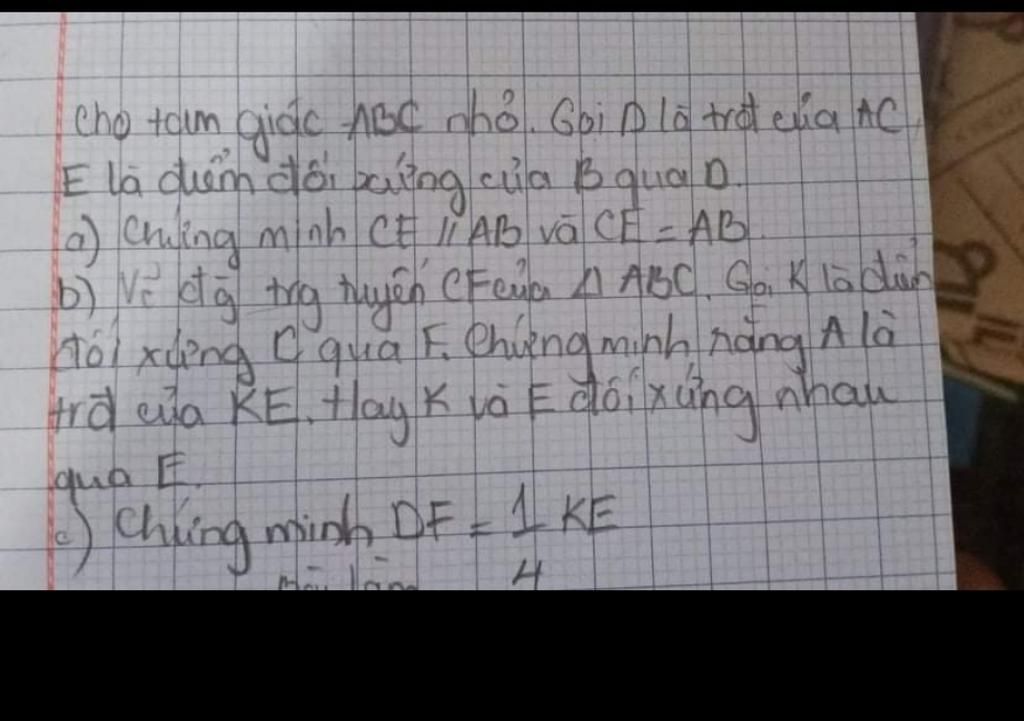 Cho tam giác ABC nhỏ. Gọi D là trđ của AC
E là điểm đối xứng của B qua D.
a) Chứng minh CE // AB và CE = AB.
b) Vẽ đg trg tuyến CF của Δ ABC. Gọi K là điểm
đối xứng C qua F. Chứng minh rằng A là
trđ của KE. Hay K và E đối xứng nhau
qua E.
c) Chứng minh DF = 1/4 KE